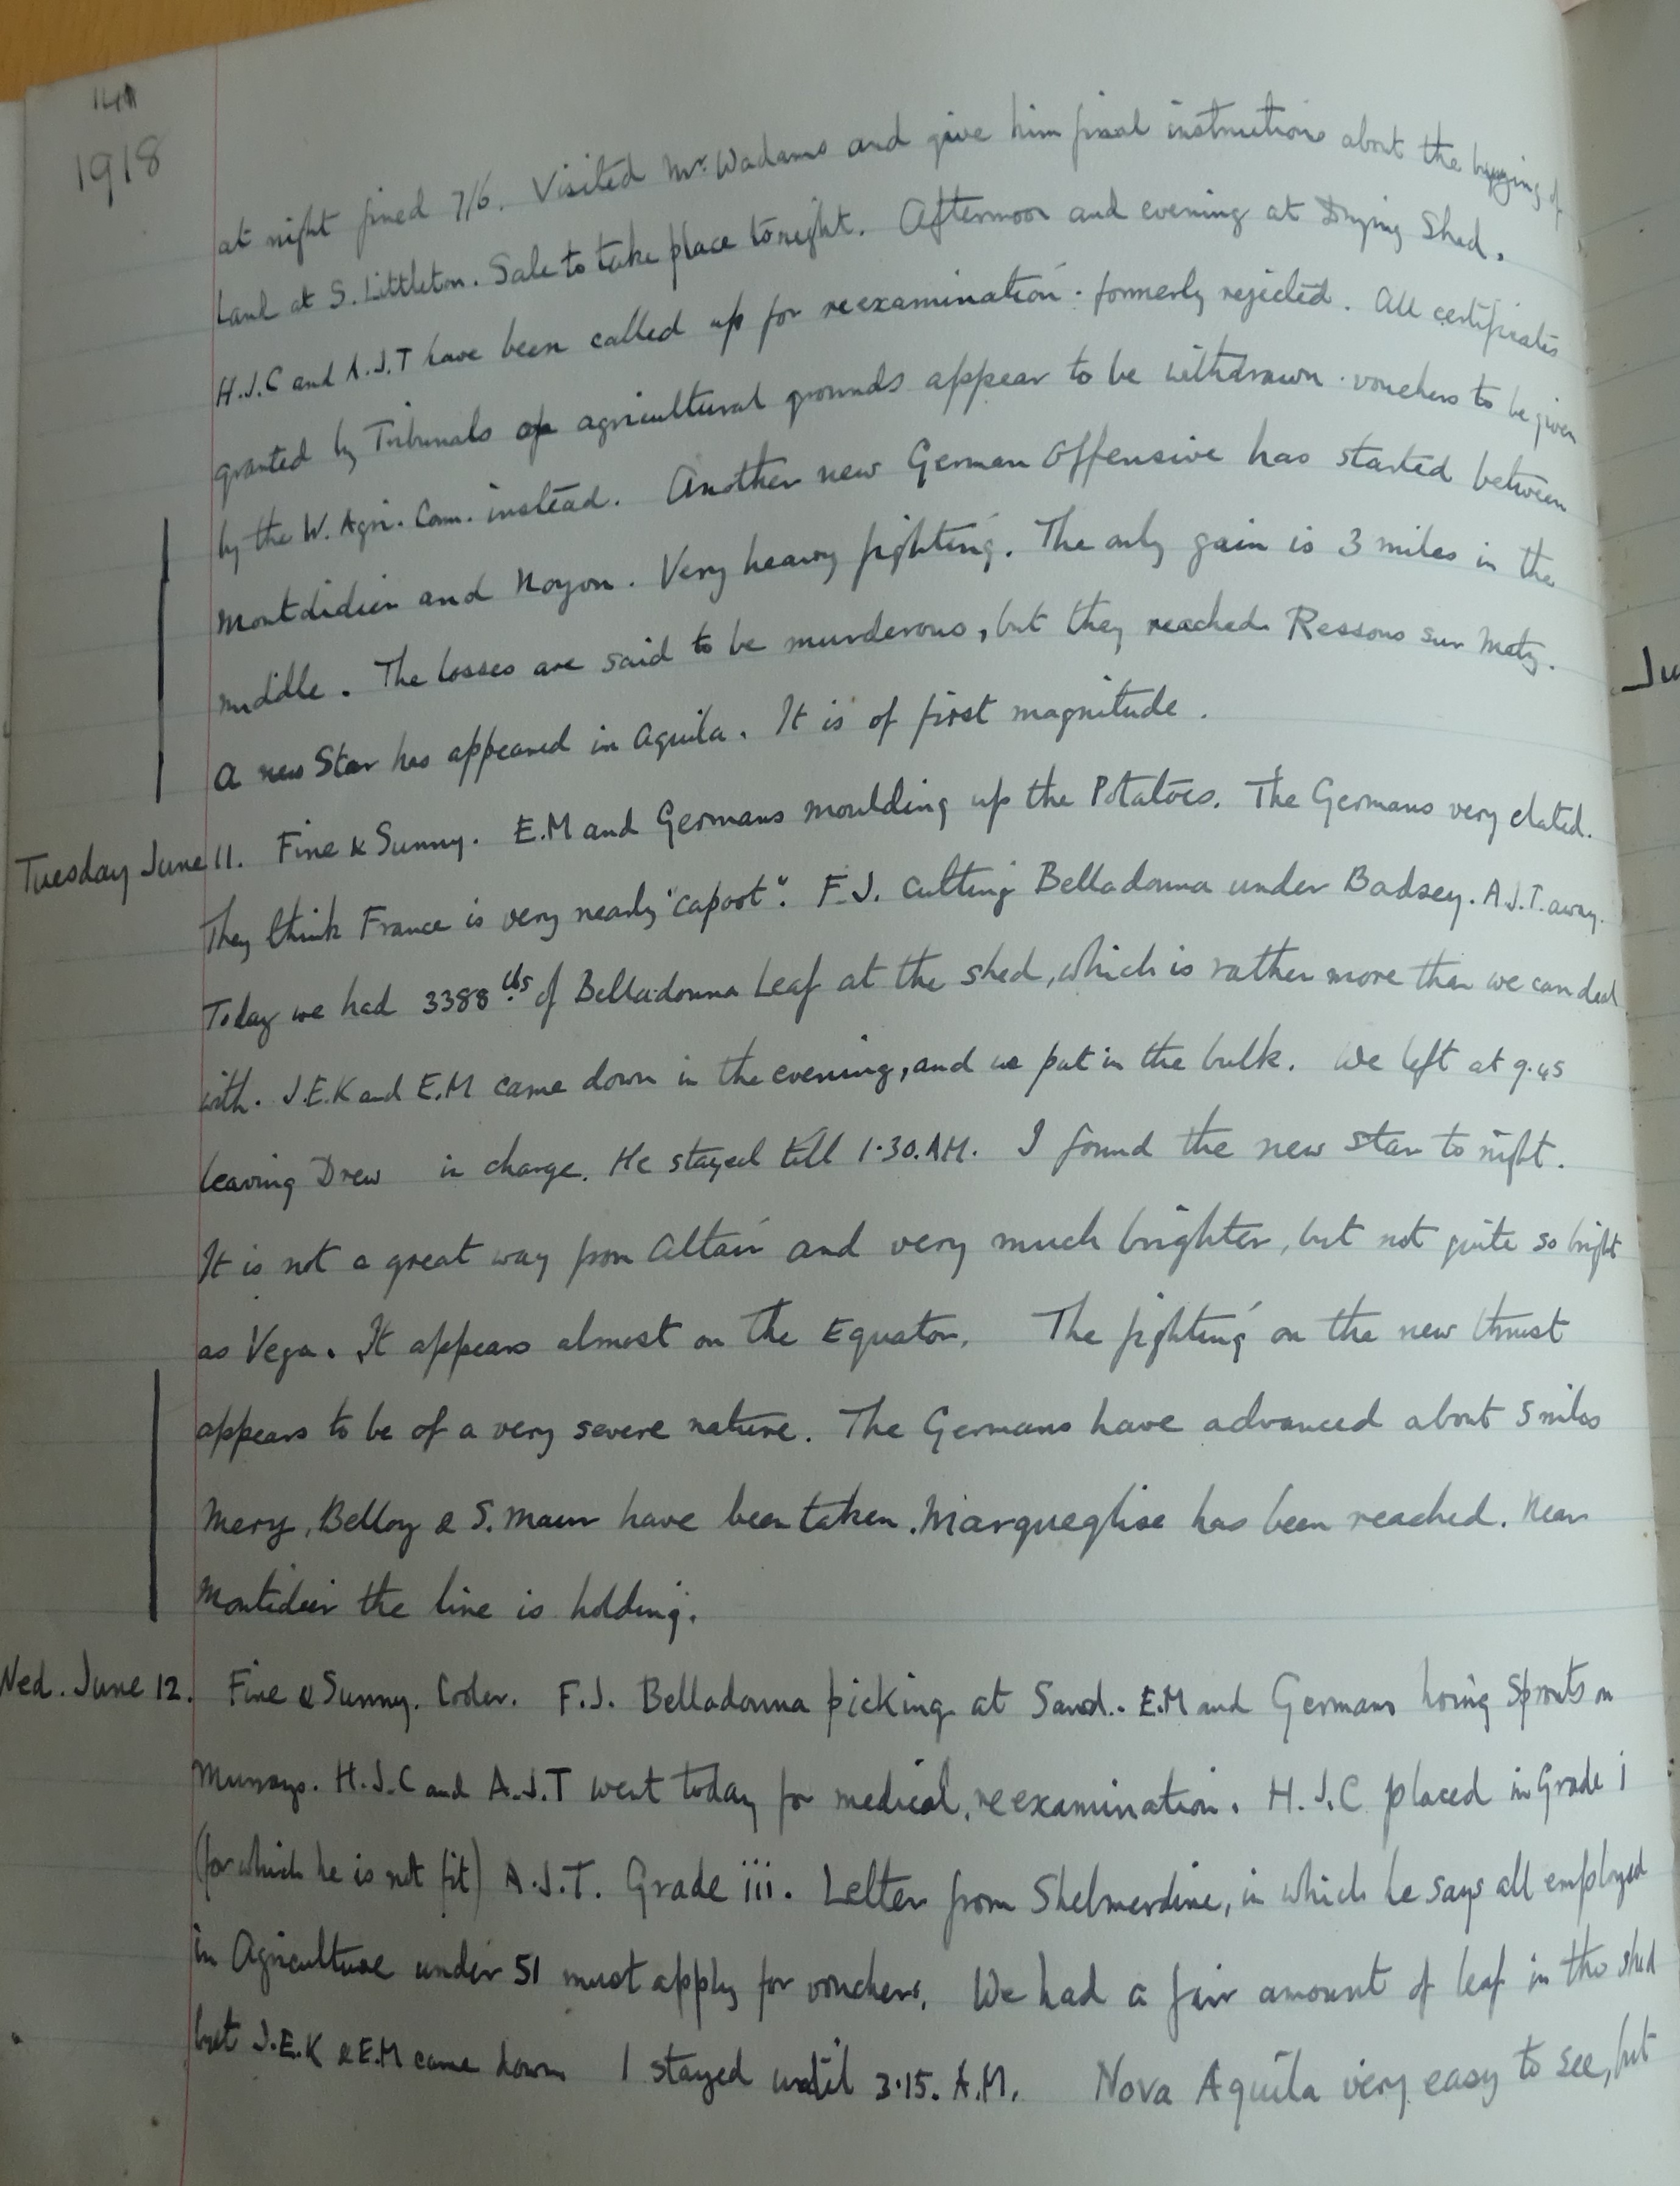 1918
at night fined 7/6. Visited Mr. Wadams and give him final instructions about the buying of
Land at S. Littleton. Sale to take place tonight. Afternoon and evening at Drying Shed.
H.J.C and A.J.T have been called up for reexamination - formerly rejected. All certificates
granted by Tribunals on agricultural grounds appear to be withdrawn - vouchers to be given
by the W. Agri. Com. instead. Another new German Offensive has started between
Montdidier and Noyon. Very heavy fighting. The only gain is 3 miles in the
middle. The losses are said to be murderous, but they reached Ressons sur Matz.
A new Star has appeared in Aquila. It is of first magnitude.
Tuesday June 11. Fine & Sunny. E.M and Germans moulding up the Potatoes. The Germans very elated.
They think France is very nearly "capoot". F.J. cutting Belladonna under Badsey. A.J.T. away.
Today we had 3388 lbs of Belladonna Leaf at the shed, which is rather more than we can deal
with. J.E.K and E.M came down in the evening, and we put in the bulk. We left at 9.45
leaving Drew in charge. He stayed till 1.30. AM. I found the new star to night.
It is not a great way from Altair and very much brighter, but not quite so bright
as Vega. It appears almost on the Equator. The fighting on the new thrust
appears to be of a very severe nature. The Germans have advanced about 5 miles
Mery, Belloy & S. Maur have been taken. Marqueglise has been reached. Near
Montidier the line is holding.
Wed. June 12. Fine & Sunny. Cooler. F.J. Belladonna picking at Sand.. E.M and Germans hoing Sprouts on
Murrays. H.J.C and A.J.T went today for medical, reexamination. H.J.C placed in Grade i
(for which he is not fit) A.J.T. Grade iii. Letter from Shelmerdine, in which he says all employed
in Agriculture under 51 must apply for vouchers. We had a fair amount of leaf in the shed
but J.E.K & E.M came down I stayed until 3.15. A.M. Nova Aquila very easy to see, but